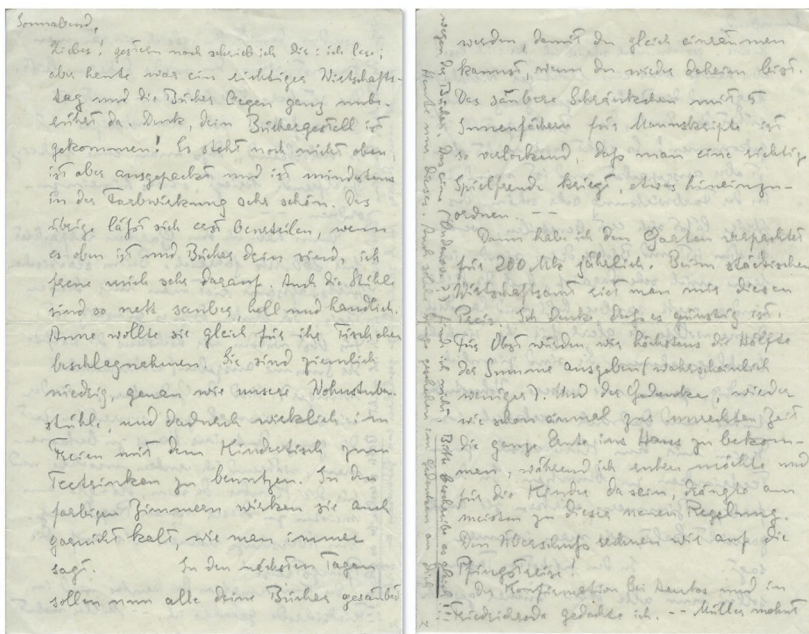 Sonnabend,
Liebes! gestern noch schrieb ich Dir: ich lese;
aber heute war ein richtiger Wirtschafts-
tag und die Bücher liegen ganz unbe-
rührt da. Denk, dein Büchergestell ist
gekommen! Es steht noch nicht oben,
ist aber ausgepackt und ist mindestens
in der Farbwirkung sehr schön. Das
übrige läßt sich erst beurteilen, wenn
es oben ist und Bücher drin sind, ich
freue mich sehr darauf. Auch die Stühle
sind so nett sauber, hell und handlich.
Anne wollte sie gleich für ihr Tischchen
beschlagnahmen. Sie sind ziemlich
niedrig, genau wie unsere Wohnstuben-
stühle, und dadurch wirklich im
Freien mit dem Kindertisch zum
Teetrinken zu benutzen. In den
farbigen Zimmern wirken sie auch
garnicht kalt, wie man immer
sagt. In den nächsten Tagen
sollen nun alle deine Bücher gesäubert
werden, damit du gleich einräumen
kannst, wenn du wieder daheim bist.
Das saubere Schränkchen mit 5
Innenfächern für Manuskripte ist
so verlockend, daß man eine richtige
Spielfreude kriegt, etwas hineinzu-
ordnen. --
Dann habe ich den Garten verpachtet
für 200 Mk jährlich. Beim städtischen
Wirtschaftsamt riet man mir diesen
Preis. Ich denke, daß es günstig ist.
Für Obst würden wir höchstens die Hälfte
der Summe ausgeben (wahrscheinlich
weniger). Und der Gedanke, wieder
wie schon einmal zur unrechten Zeit
die ganze Leute ins Haus zu bekom-
men, während ich ruhen möchte und
für die Kinder da sein, drängte am
meisten zu dieser neuen Regelung.
Den Überschuß rechnen wir auf die
Pfingstreise!
Der Konfirmation bei und in
Friedrichroda gedachte ich. -- Müller wohnt
wegen der Bücher. Das eine find ich nicht. Bitte beschreibe es gleich!!
Heute nur dieses. Auch im Gedenken an Dich